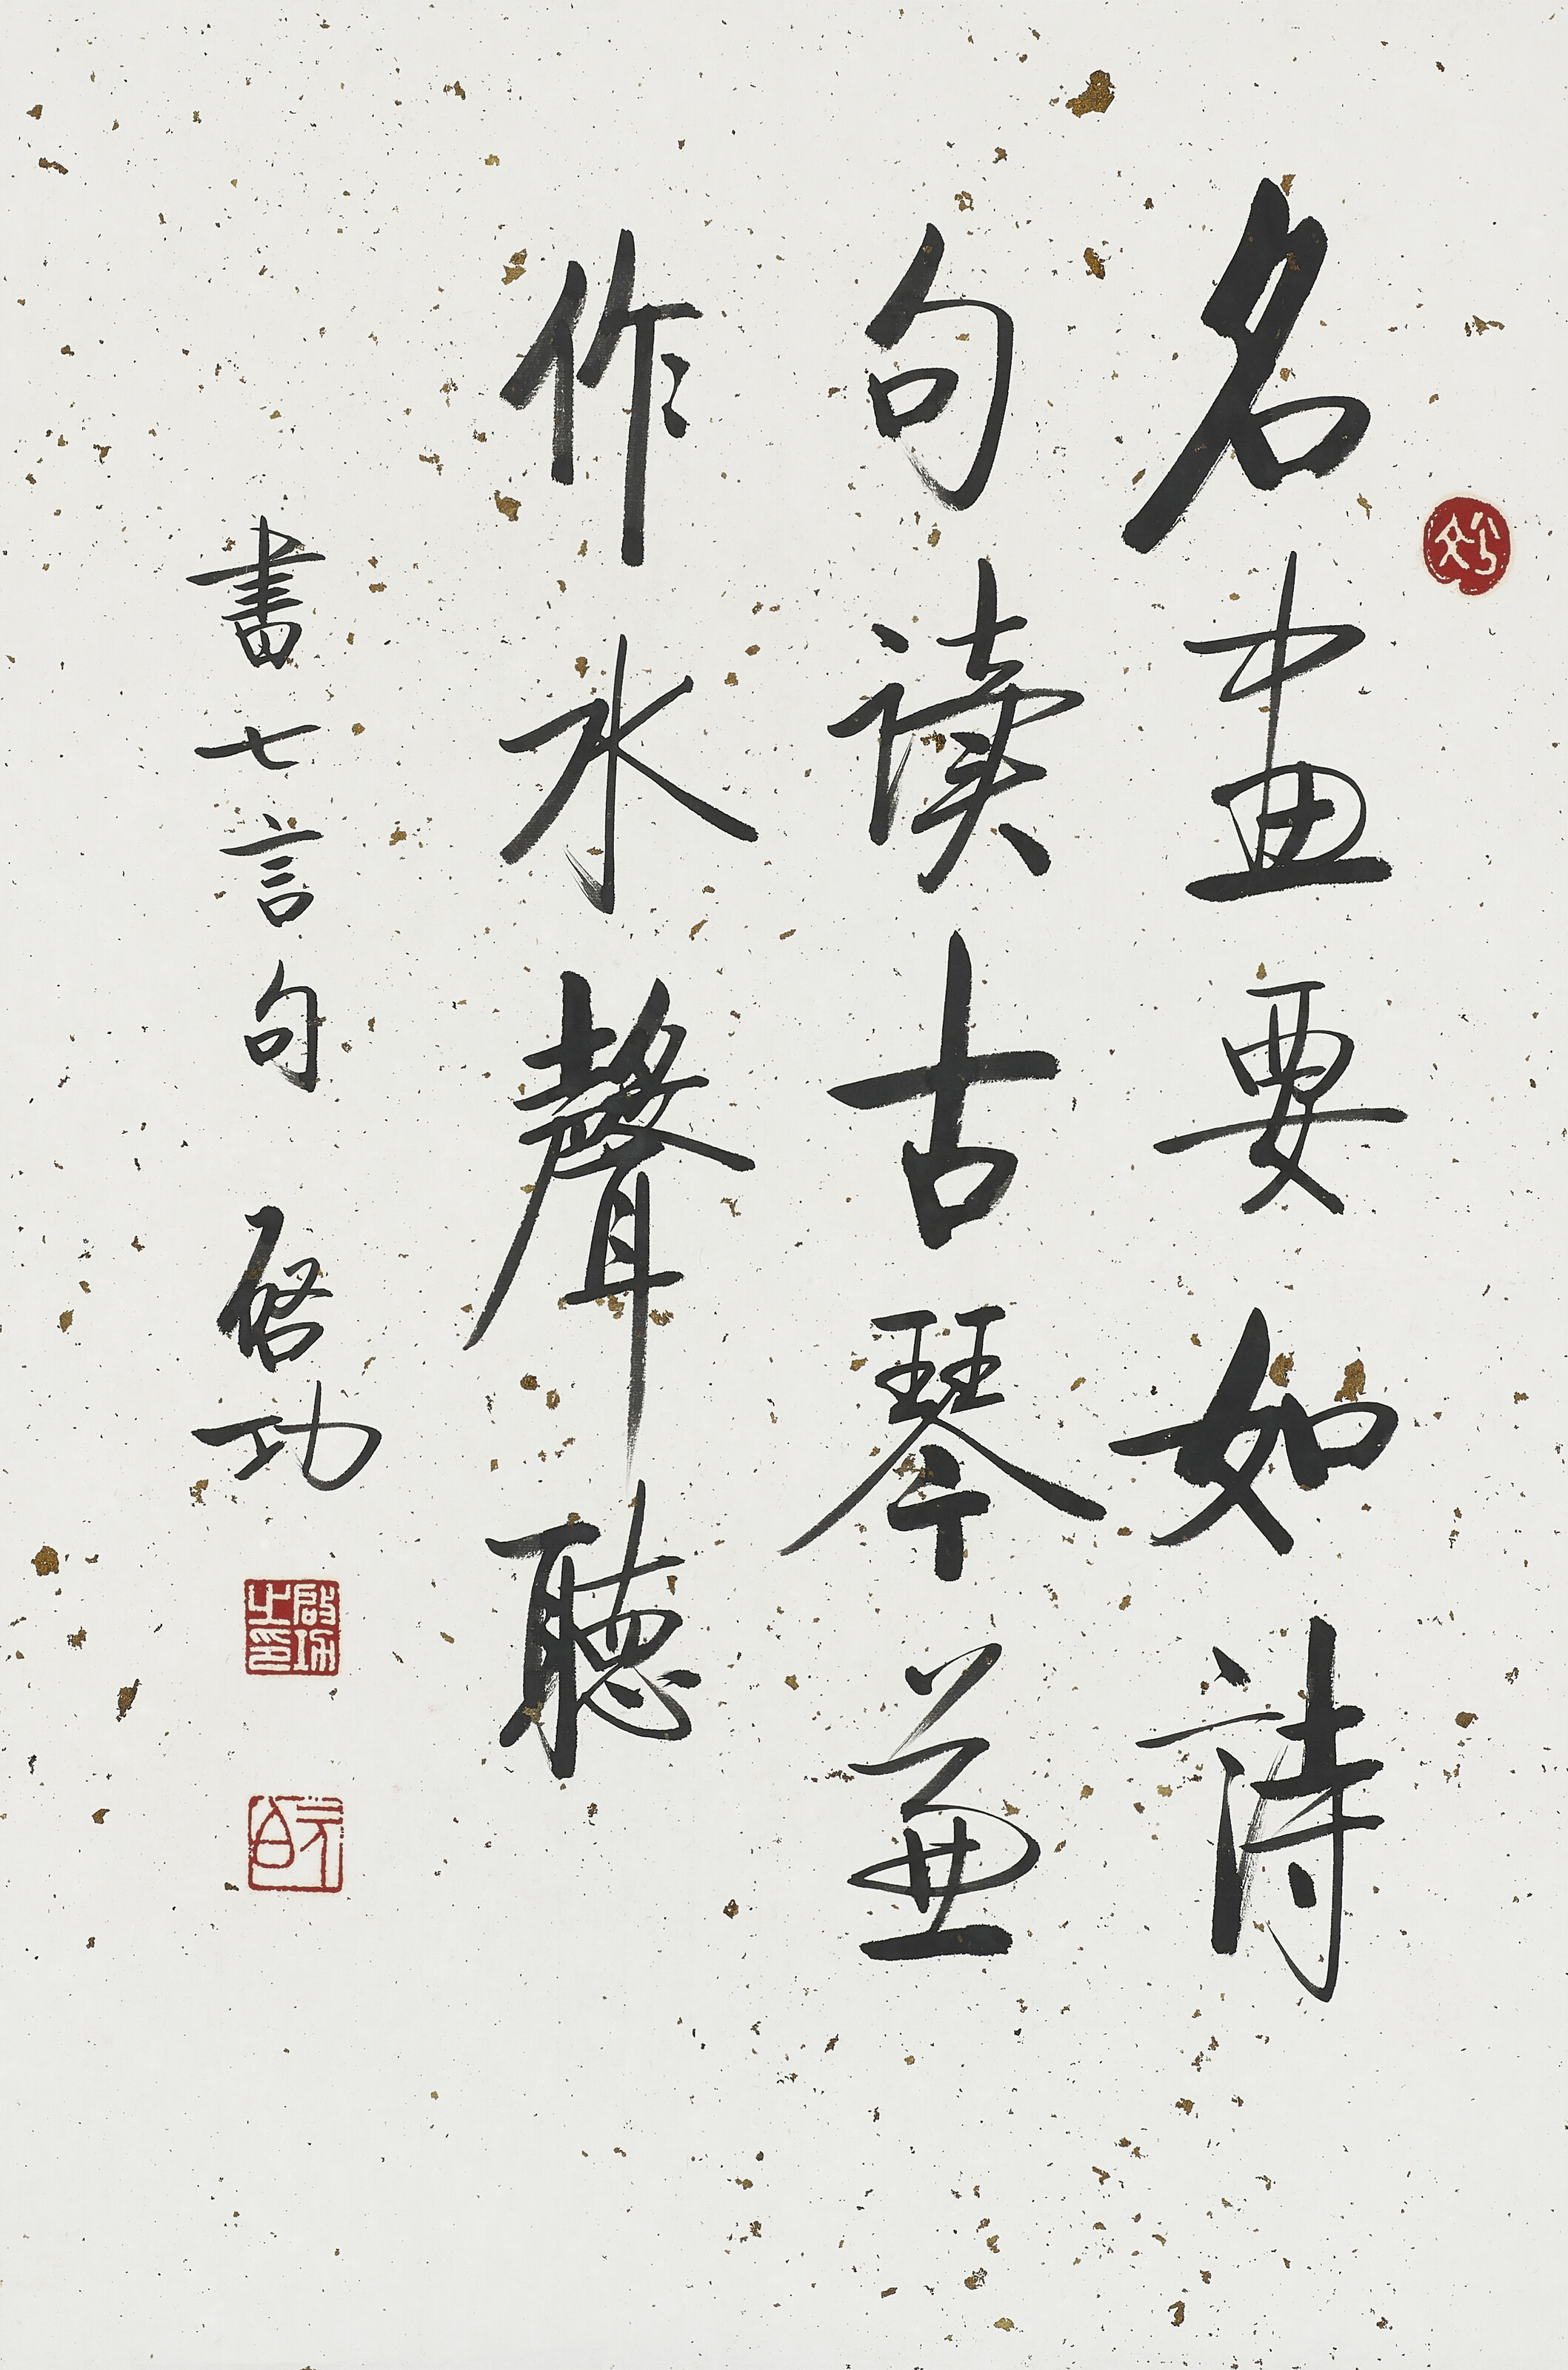 名畫要如詩
句读古琴兼
作水聲聽
書七言句 啓功
啟功之印
元白